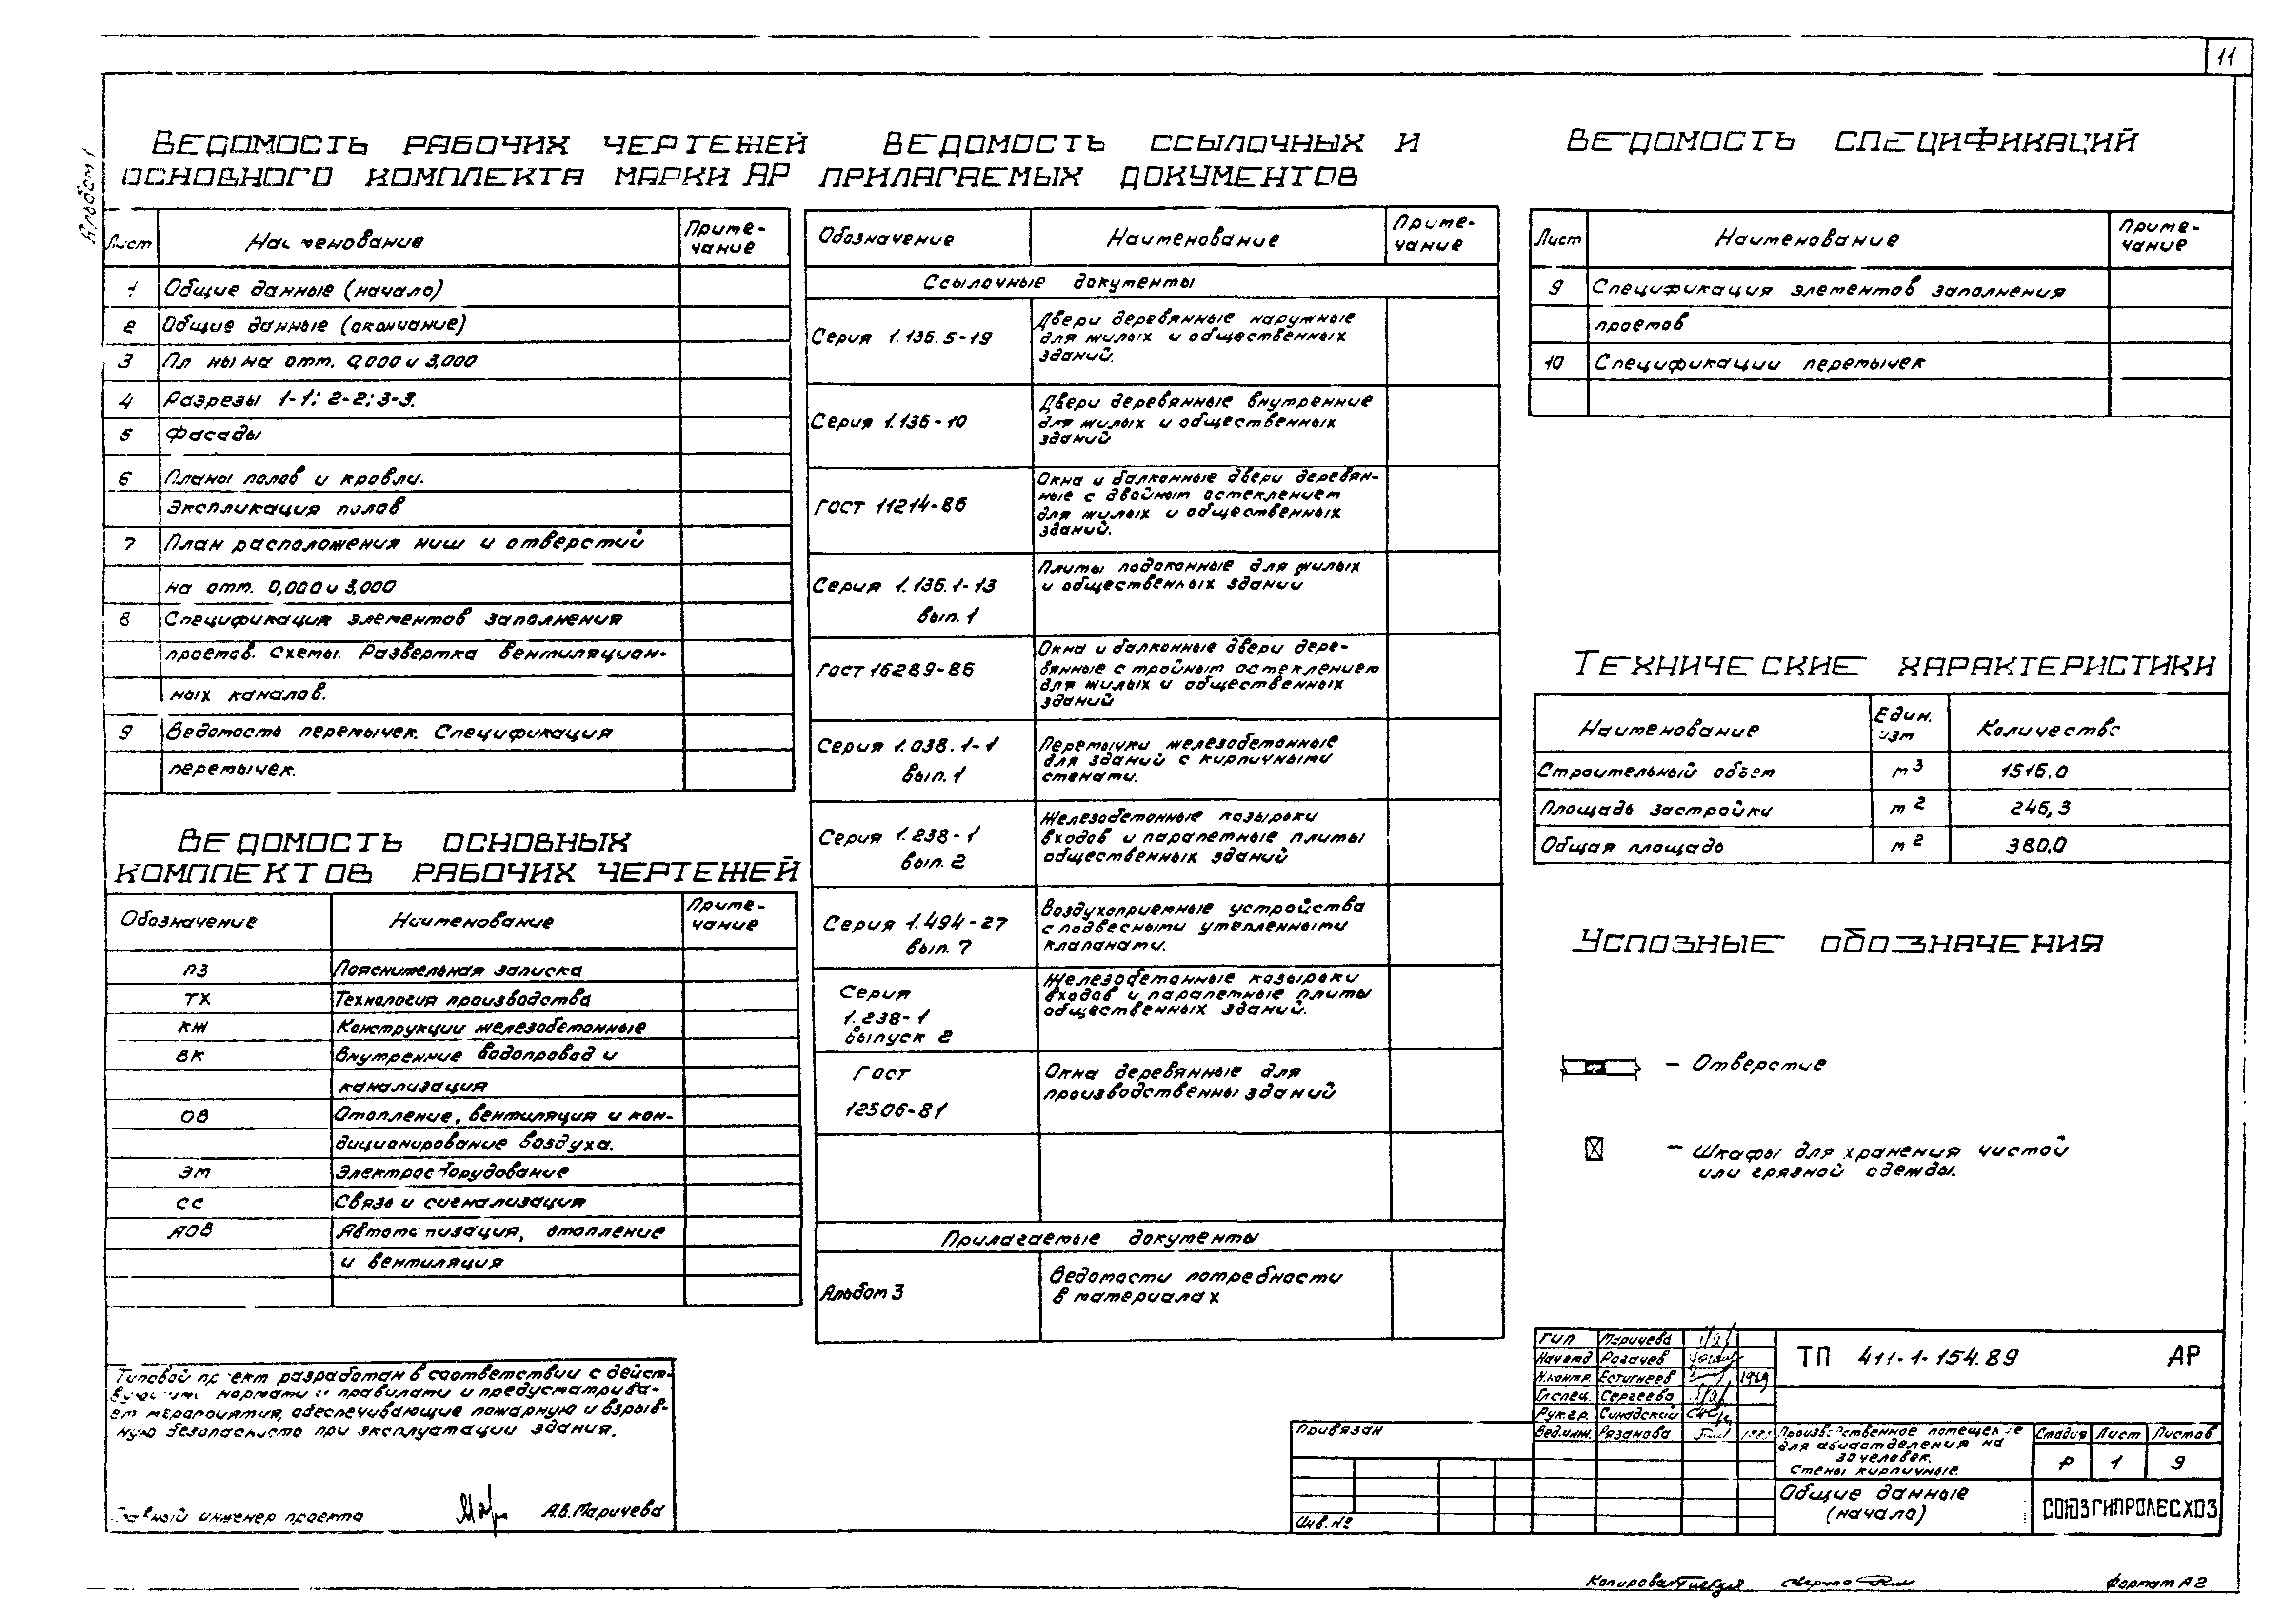 11
Альбом 1
Ведомость рабочих чертежей
основного комплекта марки АР
Лист
Приме-
чание
1 Общие данные (начало)
2 Общие данные (окончание)
3 на отм. 0,000 и 3,000
4 Разрезы 1-1; 2-2; 3-3.
5 Фасады
6 Планы полов и кровли.
Экспликация полов
7 План расположения ниш и отверстий
на отм. 0,000 и 3,000
8 Спецификация элементов заполнения
проемов. Схемы. Развертка вентиляцион-
ных каналов.
9 Ведомость перемычек. Спецификация
перемычек.
Ведомость основных
комплектов рабочих чертежей
Обозначение Наименование Приме-
чание
ПЗ Пояснительная записка
ТХ Технология производства
КЖ Конструкции железобетонные
ВК Внутренние водопровод и
канализация
ОВ Отопление, вентиляция и кон-
диционирование воздуха.
ЭМ Электрооборудование
СС Связь и сигнализация
АОВ Автоматизация, отопление
и вентиляция
Типовой проект разработан в соответствии с дейст-
нормами и правилами и предусматрива-
ет мероприятия, обеспечивающие пожарную и взрыв-
ную безопасность при эксплуатации здания.
Главный инженер проекта А.В. Маричева
Ведомость ссылочных и
прилагаемых документов
Обозначение Наименование Приме-
чание
Ссылочные документы
Серия 1.136.5-19 Двери деревянные наружные
для жилых и общественных
зданий.
Серия 1.136-10 Двери деревянные внутренние
для жилых и общественных
зданий
ГОСТ 11214-86 Окна и балконные двери деревян-
ные с двойным остеклением
для жилых и общественных
зданий.
Серия 1.136.1-13
вып. 1
Плиты подоконные для жилых
и общественных зданий
ГОСТ 16289-86 Окна и балконные двери дере-
вянные с тройным остеклением
для жилых и общественных
зданий
Серия 1.038.1-1
вып. 1
Перемычки железобетонные
для зданий с кирпичными
стенами.
Серия 1.238-1
вып. 2
Железобетонные козырьки
входов и парапетные плиты
общественных зданий
Серия 1.494-27
вып. 7
Воздухоприемные устройства
с подвесными утепленными
клапанами.
Серия
1.238-1
выпуск 2
Железобетонные козырьки
входов и парапетные плиты
общественных зданий.
ГОСТ
12506-81
Окна деревянные для
производственны зданий
Прилагаемые документы
Альбом 3 Ведомости потребности
в материалах
Ведомость спецификаций
Лист Наименование Приме-
чание
9 Спецификация элементов заполнения
проемов
10 Спецификации перемычек
Технические характеристики
Наименование Един.
изм Количество
Строительный объем м3 1516.0
Площадь застройки м2 246,3
Общая площадь м2 380,0
Условные обозначения
– Отверстие
– Шкафы для хранения чистой
или грязной одежды.
ГИП Маричева
Нач отд Рогачев
Н.контр. Естигнеев 1989
Гл.спец. Сергеева
Рук.гр. Синадский
Вед.инж. Рязанова
ТП 411-1-154.89 АР
Производственное помещение
для авиаотделения на
30 человек.
Стены кирпичные.
Стадия Лист Листов
Р 1 9
Общие данные
(начало)
СОЮЗГИПРОЛЕСХОЗ
Привязан
Инв. №
Копировал
Формат А2